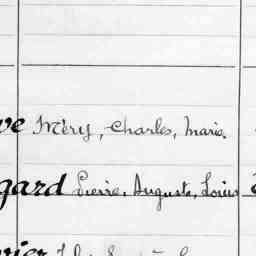 ve Méry, Charles, Marie.
gard Pierre, Auguste, Louis